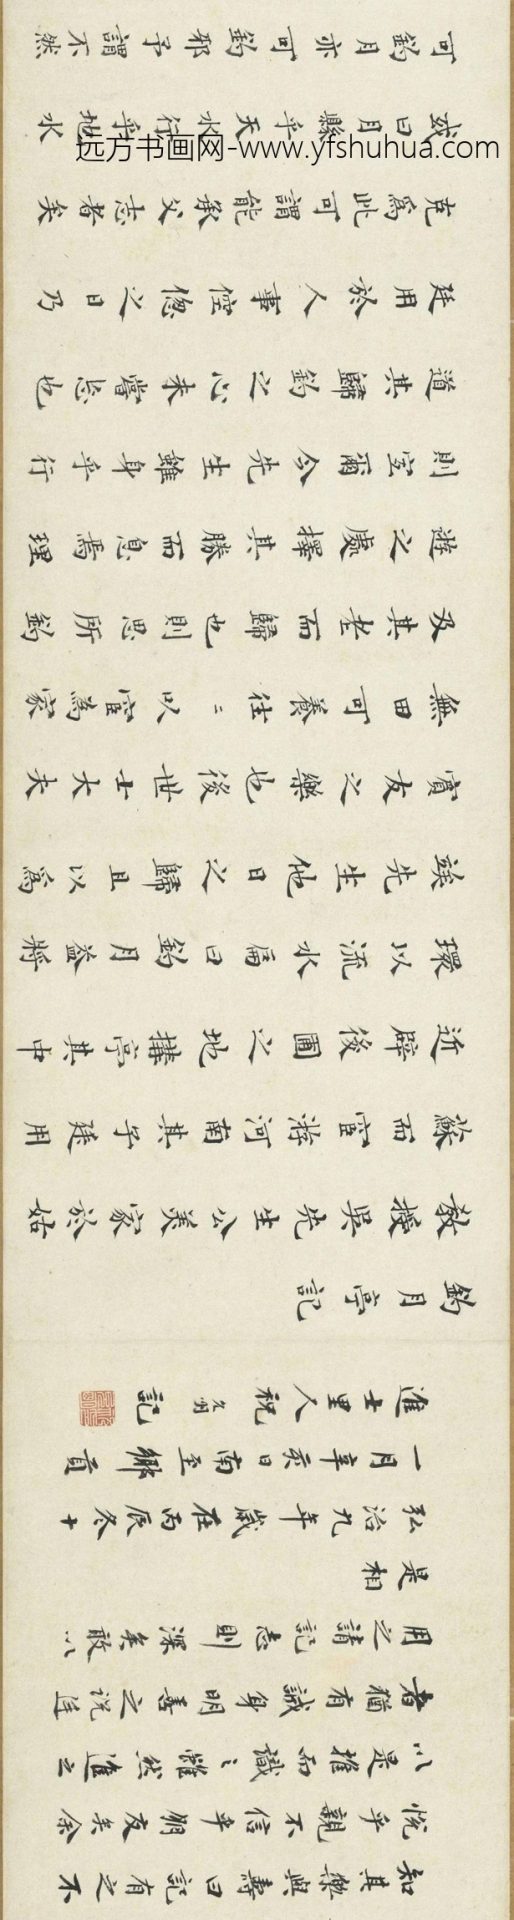 知其樂與壽曰記有之不
悅乎親不信乎朋友矣余
以是推而識之雖然進之
者猶有誠身明善之說廷
用之請記志則深矣敢以
是相
弘治九年歲在丙辰冬十
一月辛亥日南至鄉貢
進士里人祝允明記
釣月亭記
教授吳先生公美家於姑
蘇而宦游河南其子廷用
近辟後圃之地構亭其中
環以流水扁曰釣月蓋將
俟先生他日之歸且以為
賓友之樂也後世士大夫
無田可養往〻以宦為家
及其老而歸也則思所釣
遊之處擇其勝而息焉理
則宜爾今先生雖身乎行
道其歸釣之心未嘗忘也
廷用於人事倥傯之日乃
克為此可謂能承父志者矣
或曰月縣乎天水行乎地水
可釣月亦可釣邪予謂不然
远方书画网-www.yfshuhua.com